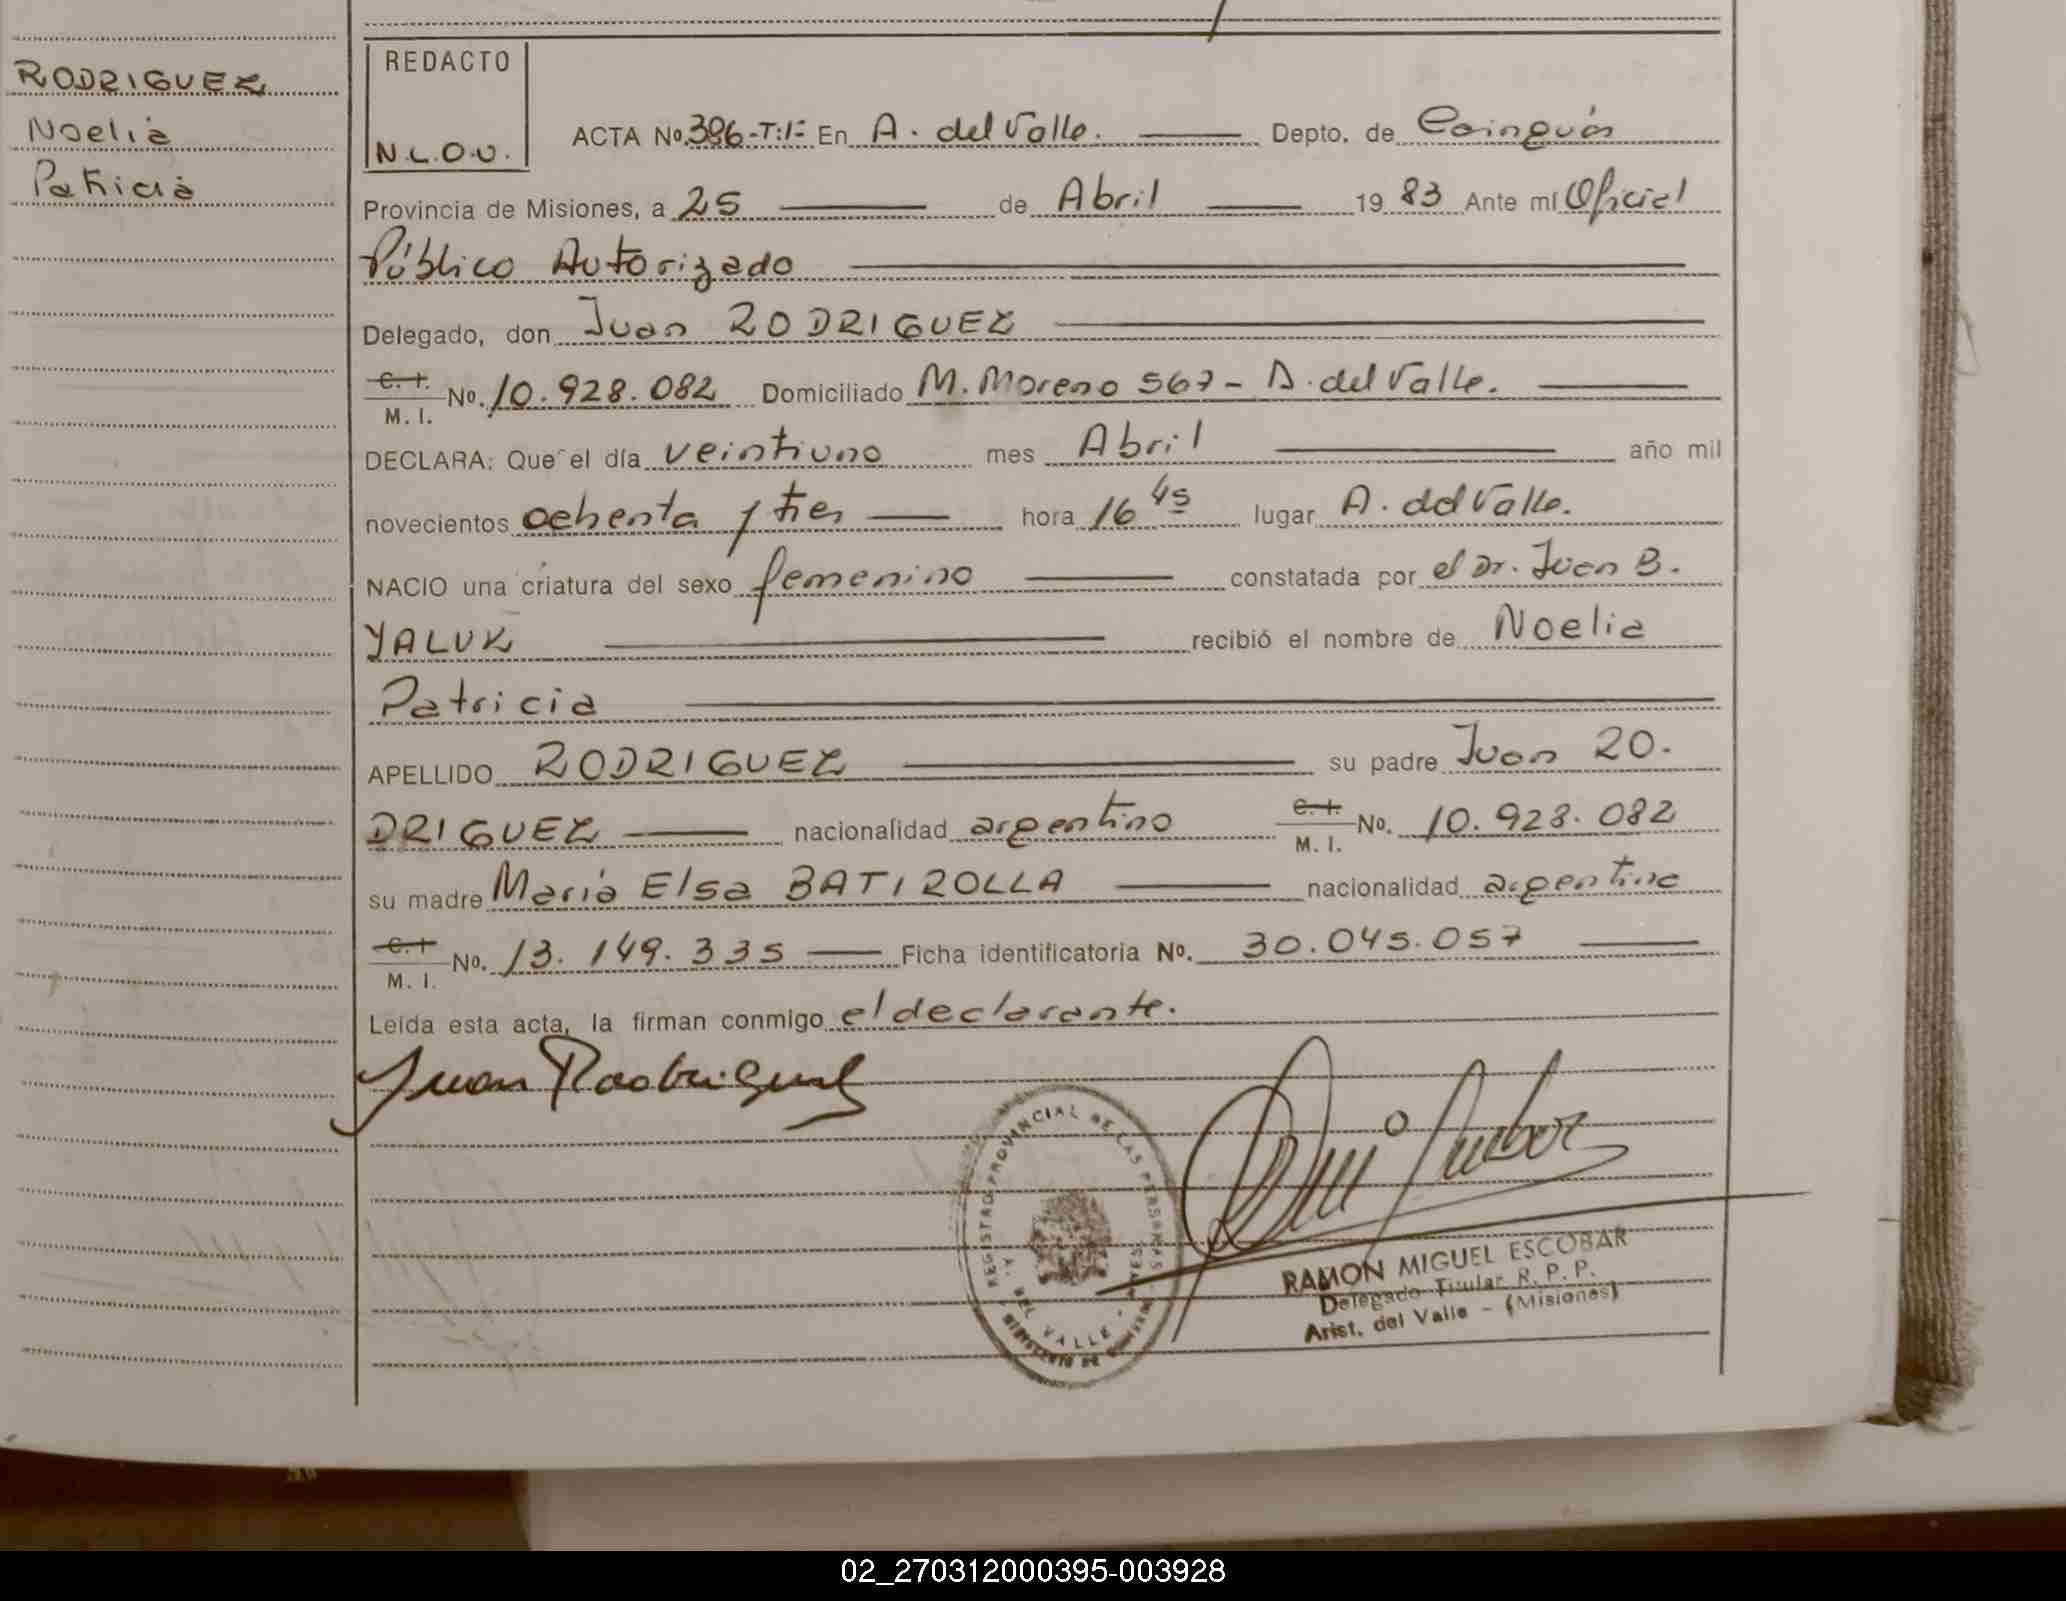 RODRIGUEZ
Noelia
Patricia
REDACTO
N.L.O.V.
ACTA No. 396-T:1= En A. del Valle. Depto. de Cainguás
Provincia de Misiones, a 25 de Abril 1983 Ante mí Oficial
Público Autorizado
Delegado, don Juan RODRIGUEZ
C. I. M. I. No. 10.928.082 Domiciliado M. Moreno 567 - A. del Valle.
DECLARA: Que el día veintiuno mes Abril año mil
novecientos ochenta y tres hora 16 45 lugar A. del Valle.
NACIO una criatura del sexo femenino constatada por el Dr. Juan B.
YALUK recibió el nombre de Noelia
Patricia
APELLIDO RODRIGUEZ su padre Juan RO.
DRIGUEZ nacionalidad argentino C. I. M. I. No. 10.928.082
su madre María Elsa BATIROLLA nacionalidad argentina
C. I. M. I. No. 13.149.335 Ficha identificatoria No. 30.045.057
Leída esta acta, la firman conmigo el declarante.
Juan Rodriguez
REGISTRO PROVINCIAL DE LAS PERSONAS
DEL VALLE
RAMON MIGUEL ESCOBAR
Delegado Titular R. P. P.
Arist. del Valle - (Misiones)
02_270312000395-003928